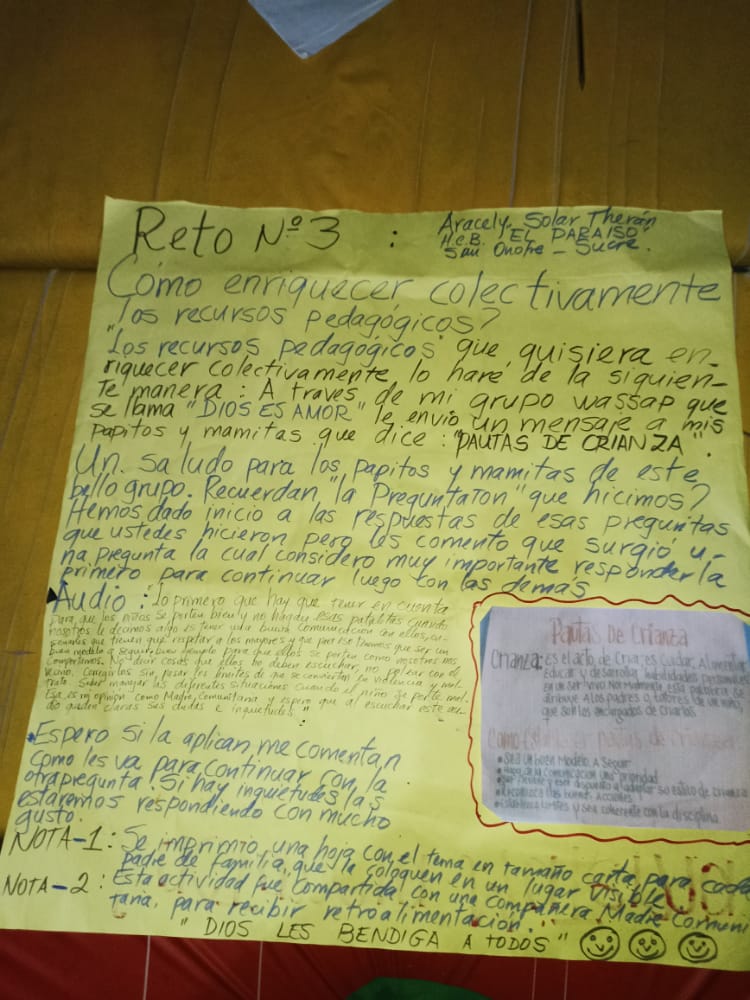 Reto Nº 3 :
Aracely Solar Therán
H.C.B. "EL PARAISO"
San Onofre – Sucre.
Cómo enriquecer colectivamente
los recursos pedagógicos?
"Los recursos pedagógicos" que quisiera en-
riquecer colectivamente lo haré de la siguien-
te manera : A través de mi grupo wassap que
se llama "DIOS ES AMOR" le envio un mensaje a mis
papitos y mamitas que dice : "PAUTAS DE CRIANZA".
Un saludo para los papitos y mamitas de este
bello grupo. Recuerdan "la Preguntaton" que hicimos?
Hemos dado inicio a las respuestas de esas preguntas
que ustedes hicieron pero les comento que surgió u-
na pregunta la cual considero muy importante responderla
primero para continuar luego con las demás
Audio : "Lo primero que hay que tener en cuenta
Para que los niños se porten bien y no hagan esas pataletas cuando
nosotros le decimos algo es tener una buena comunicación con ellos,
que tienen que respetar a los mayores y que por ese tenemos que ser un
buen modelo a seguir, buen ejemplo para que ellos se porten como nosotros nos
comportamos. No decir cosas que ellos no deben escuchar, no pelear con el
vecino, corregirlos sin pasar los limites de que se convierta en violencia y mal-
trato. Saber manejar las diferentes situaciones cuando el niño se porte mal.
Esa es mi opinión como Madre Comunitaria y espero que al escuchar este au-
dio queden claras sus dudas e inquietudes".
Espero si la aplican, me comentan
como les va para continuar con la
otra pregunta. Si hay inquietudes las
estaremos respondiendo con mucho
gusto.
Pautas De Crianza
Crianza: Es el acto de Criar, es cuidar, Alimentar
Educar y desarrollar habilidades personales
en un ser vivo. Normalmente esta palabra se
atribuye a los padres o tutores de un niño,
que son los encargados de criarlos.
Como Establecer pautas de Crianza
• Sea un buen Modelo A Seguir
• Haga de la Comunicación una prioridad
• Sea flexible y este dispuesto a adaptar su estilo de crianza
• Reconozca las buenas Acciones
• Establezca limites y sea coherente con la disciplina
NOTA-1 : Se imprimio una hoja con el tema en tamaño carta para cada
padre de familia, que la coloquen en un lugar visible
NOTA-2 : Esta actividad fue compartida con una compañera Madre Comuni
taria, para recibir retroalimentación.
"DIOS LES BENDIGA A TODOS"